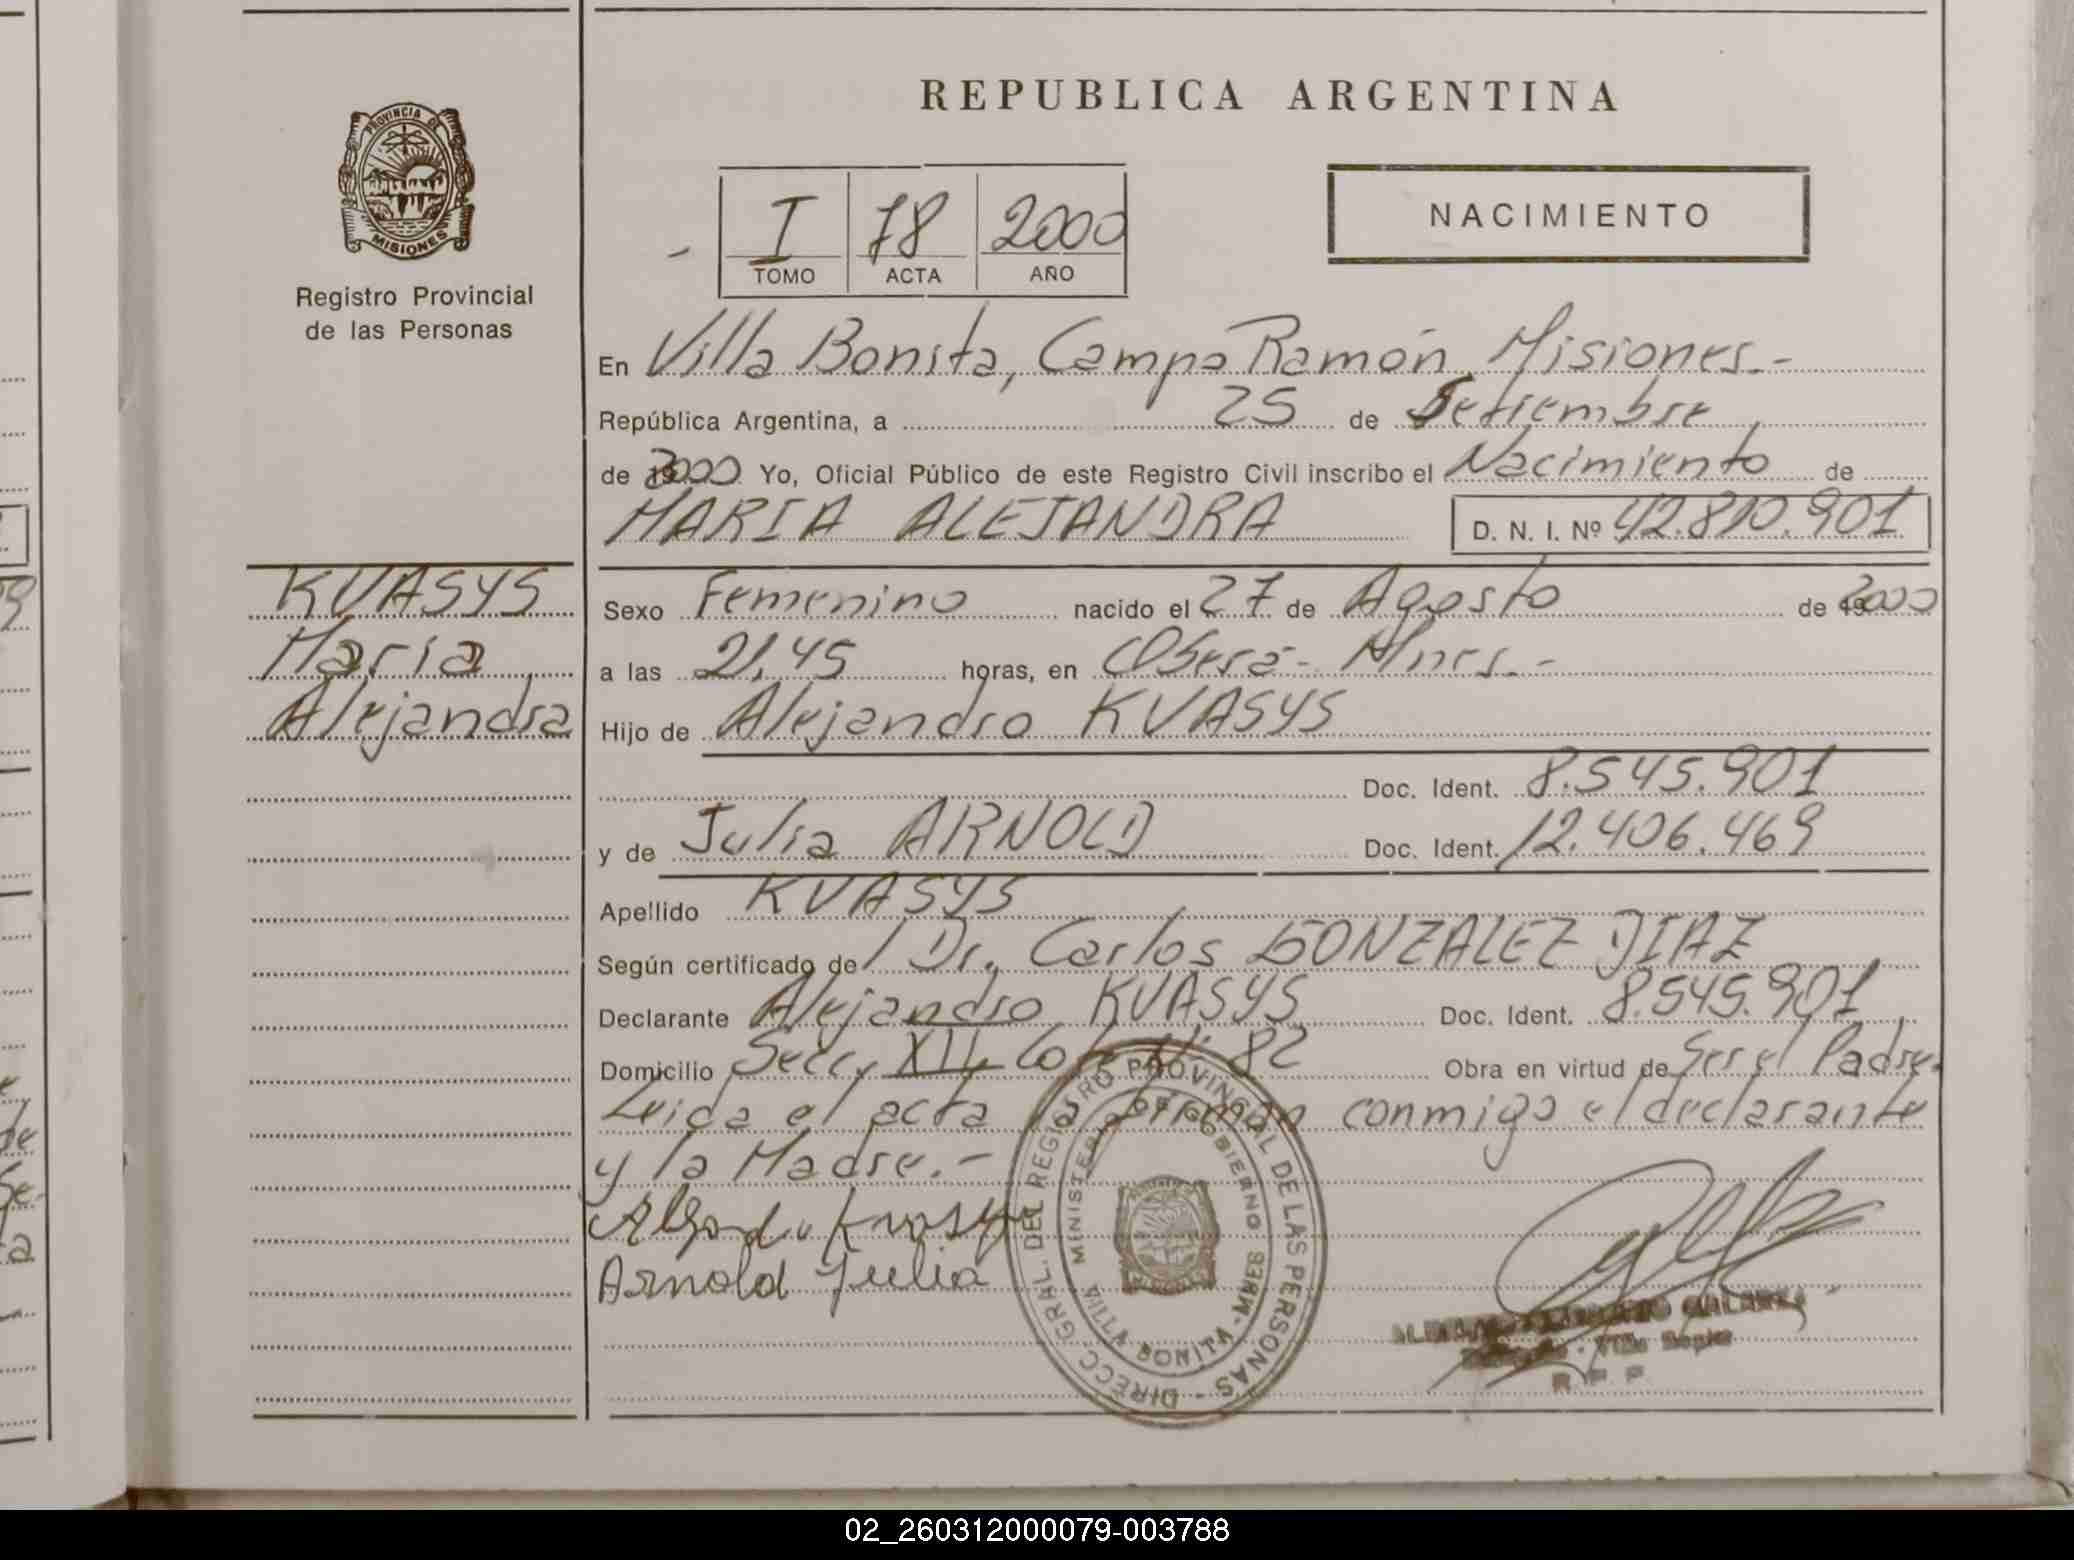 REPUBLICA ARGENTINA
PROVINCIA DE
MISIONES
Registro Provincial
de las Personas
I 78 2000
TOMO ACTA AÑO
NACIMIENTO
En Villa Bonita, Campo Ramón, Misiones.-
República Argentina, a 25 de Setiembre
de 2000 Yo, Oficial Público de este Registro Civil inscribo el Nacimiento de
MARIA ALEJANDRA D. N. I. Nº 42.810.901
KVASYS
Maria
Alejandra
Sexo Femenino nacido el 27 de Agosto de 2000
a las 21,45 horas, en Oberá- Mnes.-
Hijo de Alejandro KVASYS
Doc. Ident. 8.545.901
y de Julia ARNOLD Doc. Ident. 12.406.469
Apellido KVASYS
Según certificado de / Dr. Carlos GONZALEZ DIAZ
Declarante Alejandro KVASYS Doc. Ident. 8.545.901
Domicilio Secc. XII Lote Nº 82 Obra en virtud de Ser el Padre.
Leida el acta la firman conmigo el declarante
y la Madre.-
Arnold Julia
DIRECC. GRAL. DEL REGISTRO PROVINCIAL DE LAS PERSONAS -
MINISTERIO DE GOBIERNO
VILLA BONITA-MNES
02_260312000079-003788